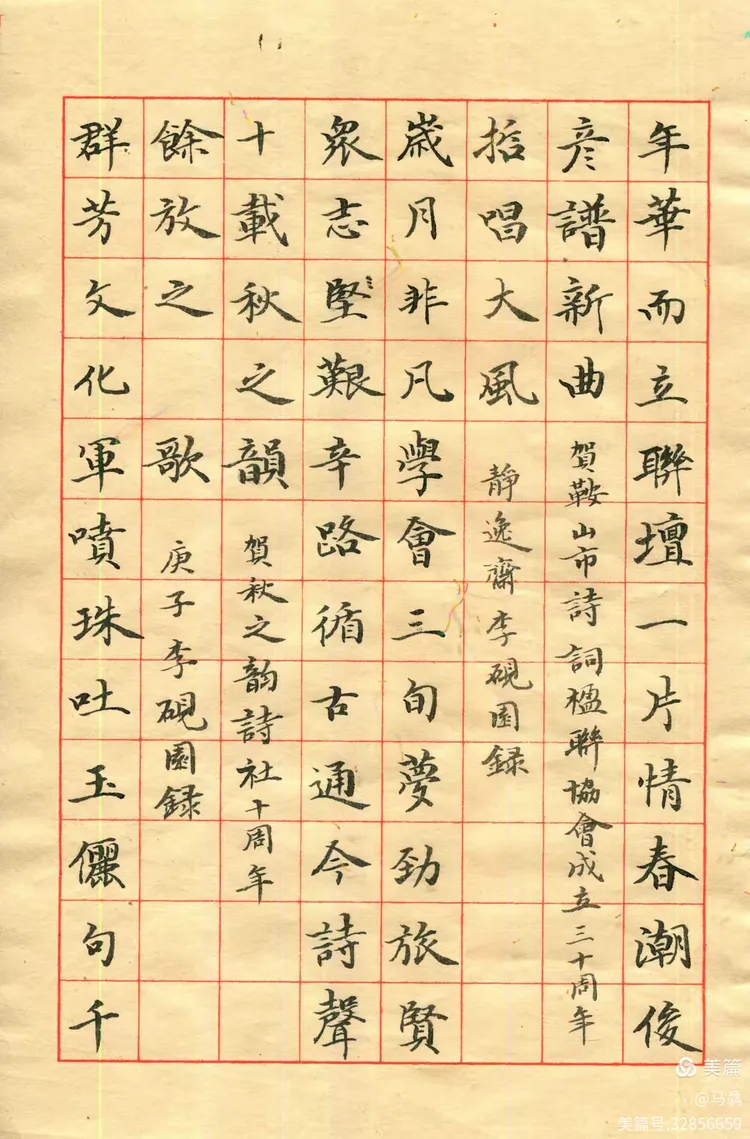 年華而立聯壇一片情春潮俊
彥譜新曲
賀鞍山市詩詞楹聯協會成立三十周年
哲唱大風
靜逸齋李硯園録
歲月非凡學會三旬夢勁旅賢
衆志堅艱辛路循古通今詩聲
十載秋之韻
賀秋之韵詩社十周年
餘放之歌
庚子李硯園録
群芳文化軍噴珠吐玉儷句千
美篇
@马骉
美篇号:32856659